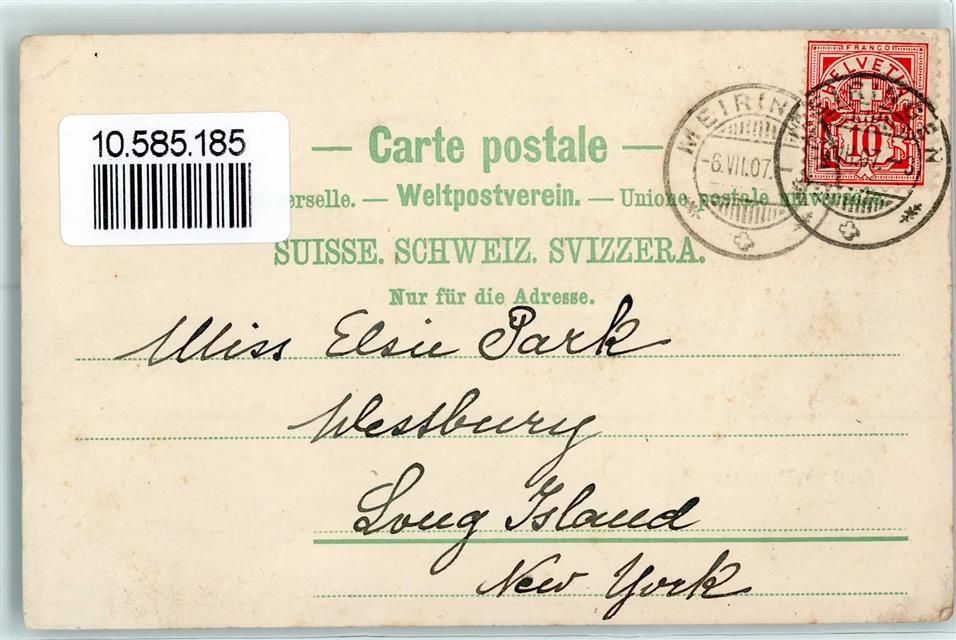 10.585.185
— Carte postale —
erselle. — Weltpostverein. — Unione postale universale.
SUISSE. SCHWEIZ. SVIZZERA.
Nur für die Adresse.
Miss Elsie Park
Westbury
Long Island
New York
FRANCO
HELVETIA
10
MEIRIN
-6.VII.07.
MEIRINGEN